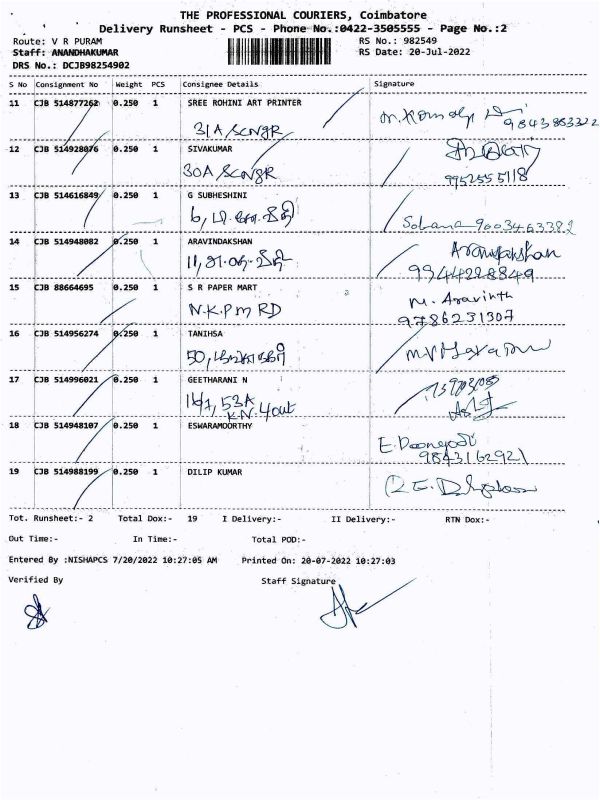 THE PROFESSIONAL COURIERS, Coimbatore
Delivery Runsheet - PCS - Phone No.:0422-3505555 - Page No.:2
Route: V R PURAM RS No.: 982549
Staff: ANANDHAKUMAR RS Date: 20-Jul-2022
DRS No.: DCJB98254902
S No Consignment No Weight PCS Consignee Details Signature
11 CJB 514877262 0.250 1 SREE ROHINI ART PRINTER
31A, SCNGR 9843883322
12 CJB 514928076 0.250 1 SIVAKUMAR
30A, SCNGR 9952555118
13 CJB 514616849 0.250 1 G SUBHESHINI
6, Sobana 9003463382
14 CJB 514948082 0.250 1 ARAVINDAKSHAN Aravindakshan
11, 9944228849
15 CJB 88664695 0.250 1 S R PAPER MART M. Aravinth
N.K.P.M RD 9786231307
16 CJB 514956274 0.250 1 TANIHSA
50,
17 CJB 514996021 0.250 1 GEETHARANI N
53A
K.N. Yout
18 CJB 514948107 0.250 1 ESWARAMOORTHY
9843162921
19 CJB 514988199 0.250 1 DILIP KUMAR
Tot. Runsheet:- 2 Total Dox:- 19 I Delivery:- II Delivery:- RTN Dox:-
Out Time:- In Time:- Total POD:-
Entered By :NISHAPCS 7/20/2022 10:27:05 AM Printed On: 20-07-2022 10:27:03
Verified By Staff Signature